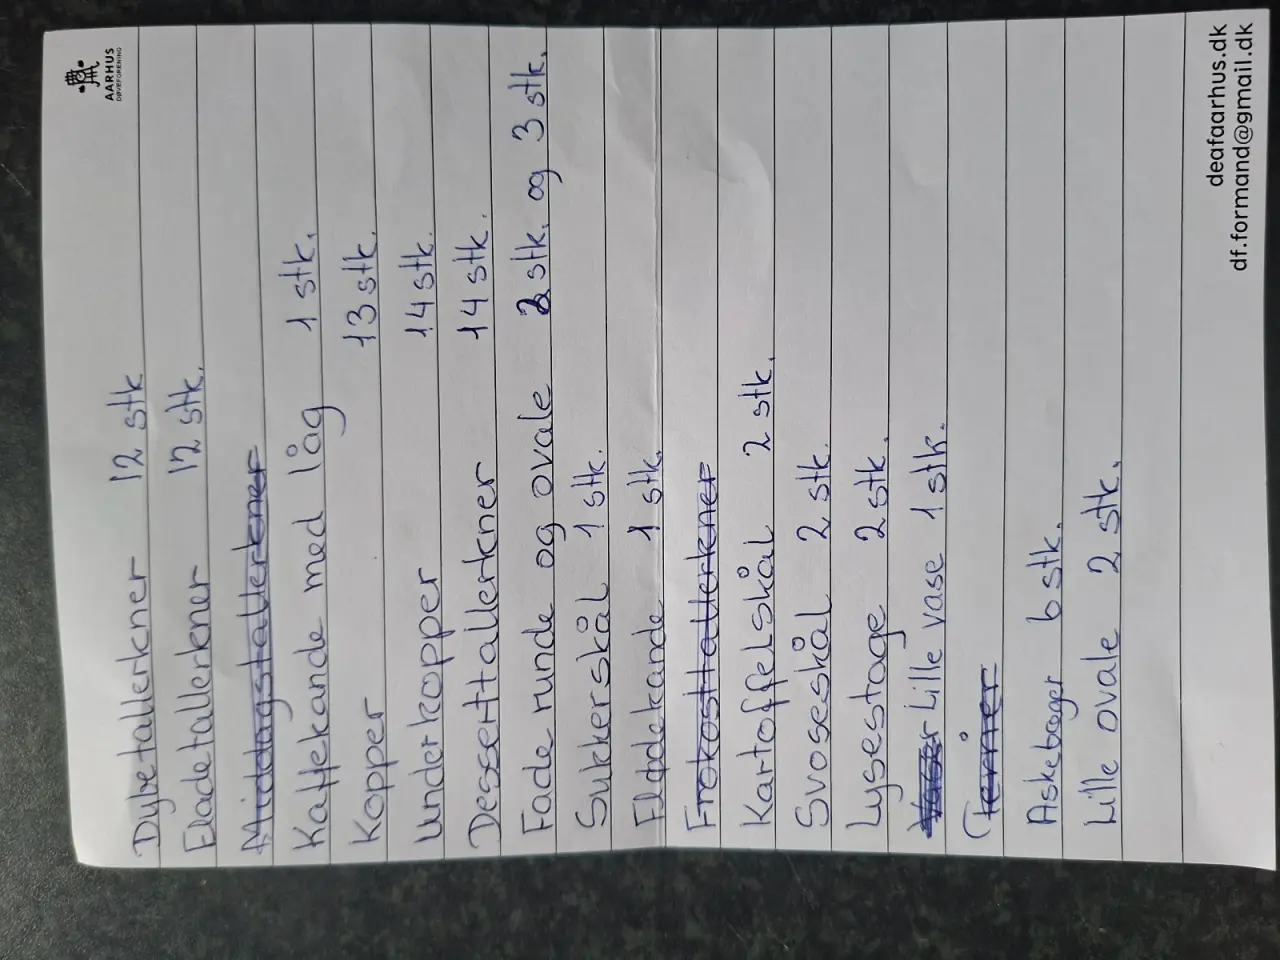 AARHUS
DØVEFORENING
Dybetallerkner 12 stk
Fladetallerkner 12 stk.
Middagstallerkner
Kaffekande med låg 1 stk.
Kopper 13 stk.
Underkopper 14 stk.
Desserttallerkner 14 stk.
Fade runde og ovale 2 stk. og 3 stk.
Sukkerskål 1 stk.
Flødekande 1 stk.
Frokosttallerkner
Kartoffelskål 2 stk.
Svoseskål 2 stk.
Lysestage 2 stk.
Vaser Lille vase 1 stk.
(Terriner
Askebæger 6 stk.
Lille ovale 2 stk.
deafaarhus.dk
df.formand@gmail.dk